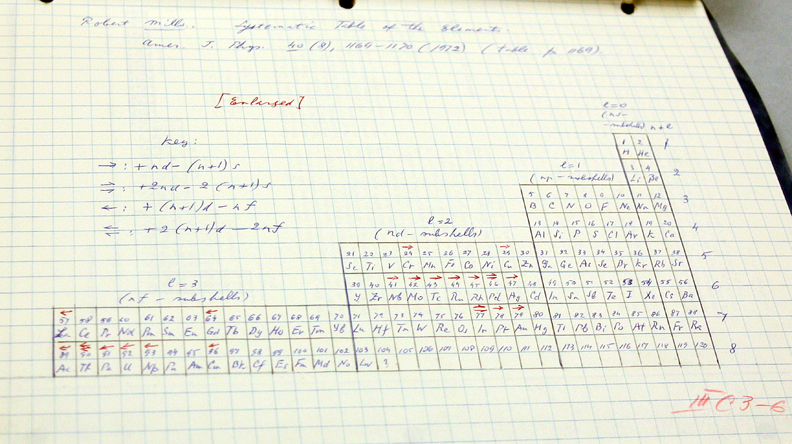 Robert Mills. Systematic Table of the Elements.
Amer. J. Phys. 40 (8), 1169-1170 (1972) (table p 1169).
[Enlarged]
l=0
(ns-
-subshells) n+l
Key:
→ : + nd - (n+1)s
⇉ : +2nd - 2(n+1)s
← : + (n+1)d - nf
⇇ : +2(n+1)d - 2nf
1 2 1
H He
3 4 2
Li Be
l=1
(np - subshells)
5 6 7 8 9 10 11 12 3
B C N O F Ne Na Mg
13 14 15 16 17 18 19 20 4
Al Si P S Cl Ar K Ca
l=2
(nd - subshells)
21 22 23 24 25 26 27 28 29 30 31 32 33 34 35 36 37 38 5
Sc Ti V Cr Mn Fe Co Ni Cu Zn Ga Ge As Se Br Kr Rb Sr
39 40 41 42 43 44 45 46 47 48 49 50 51 52 53 54 55 56 6
Y Zr Nb Mo Tc Ru Rh Pd Ag Cd In Sn Sb Te I Xe Cs Ba
l=3
(nf - subshells)
57 58 59 60 61 62 63 64 65 66 67 68 69 70 71 72 73 74 75 76 77 78 79 80 81 82 83 84 85 86 87 88 7
La Ce Pr Nd Pm Sm Eu Gd Tb Dy Ho Er Tm Yb Lu Hf Ta W Re Os Ir Pt Au Hg Tl Pb Bi Po At Rn Fr Ra
89 90 91 92 93 94 95 96 97 98 99 100 101 102 103 104 105 106 107 108 109 110 111 112 113 114 115 116 117 118 119 120 8
Ac Th Pa U Np Pu Am Cm Bk Cf Es Fm Md No Lw ?
III C3-6